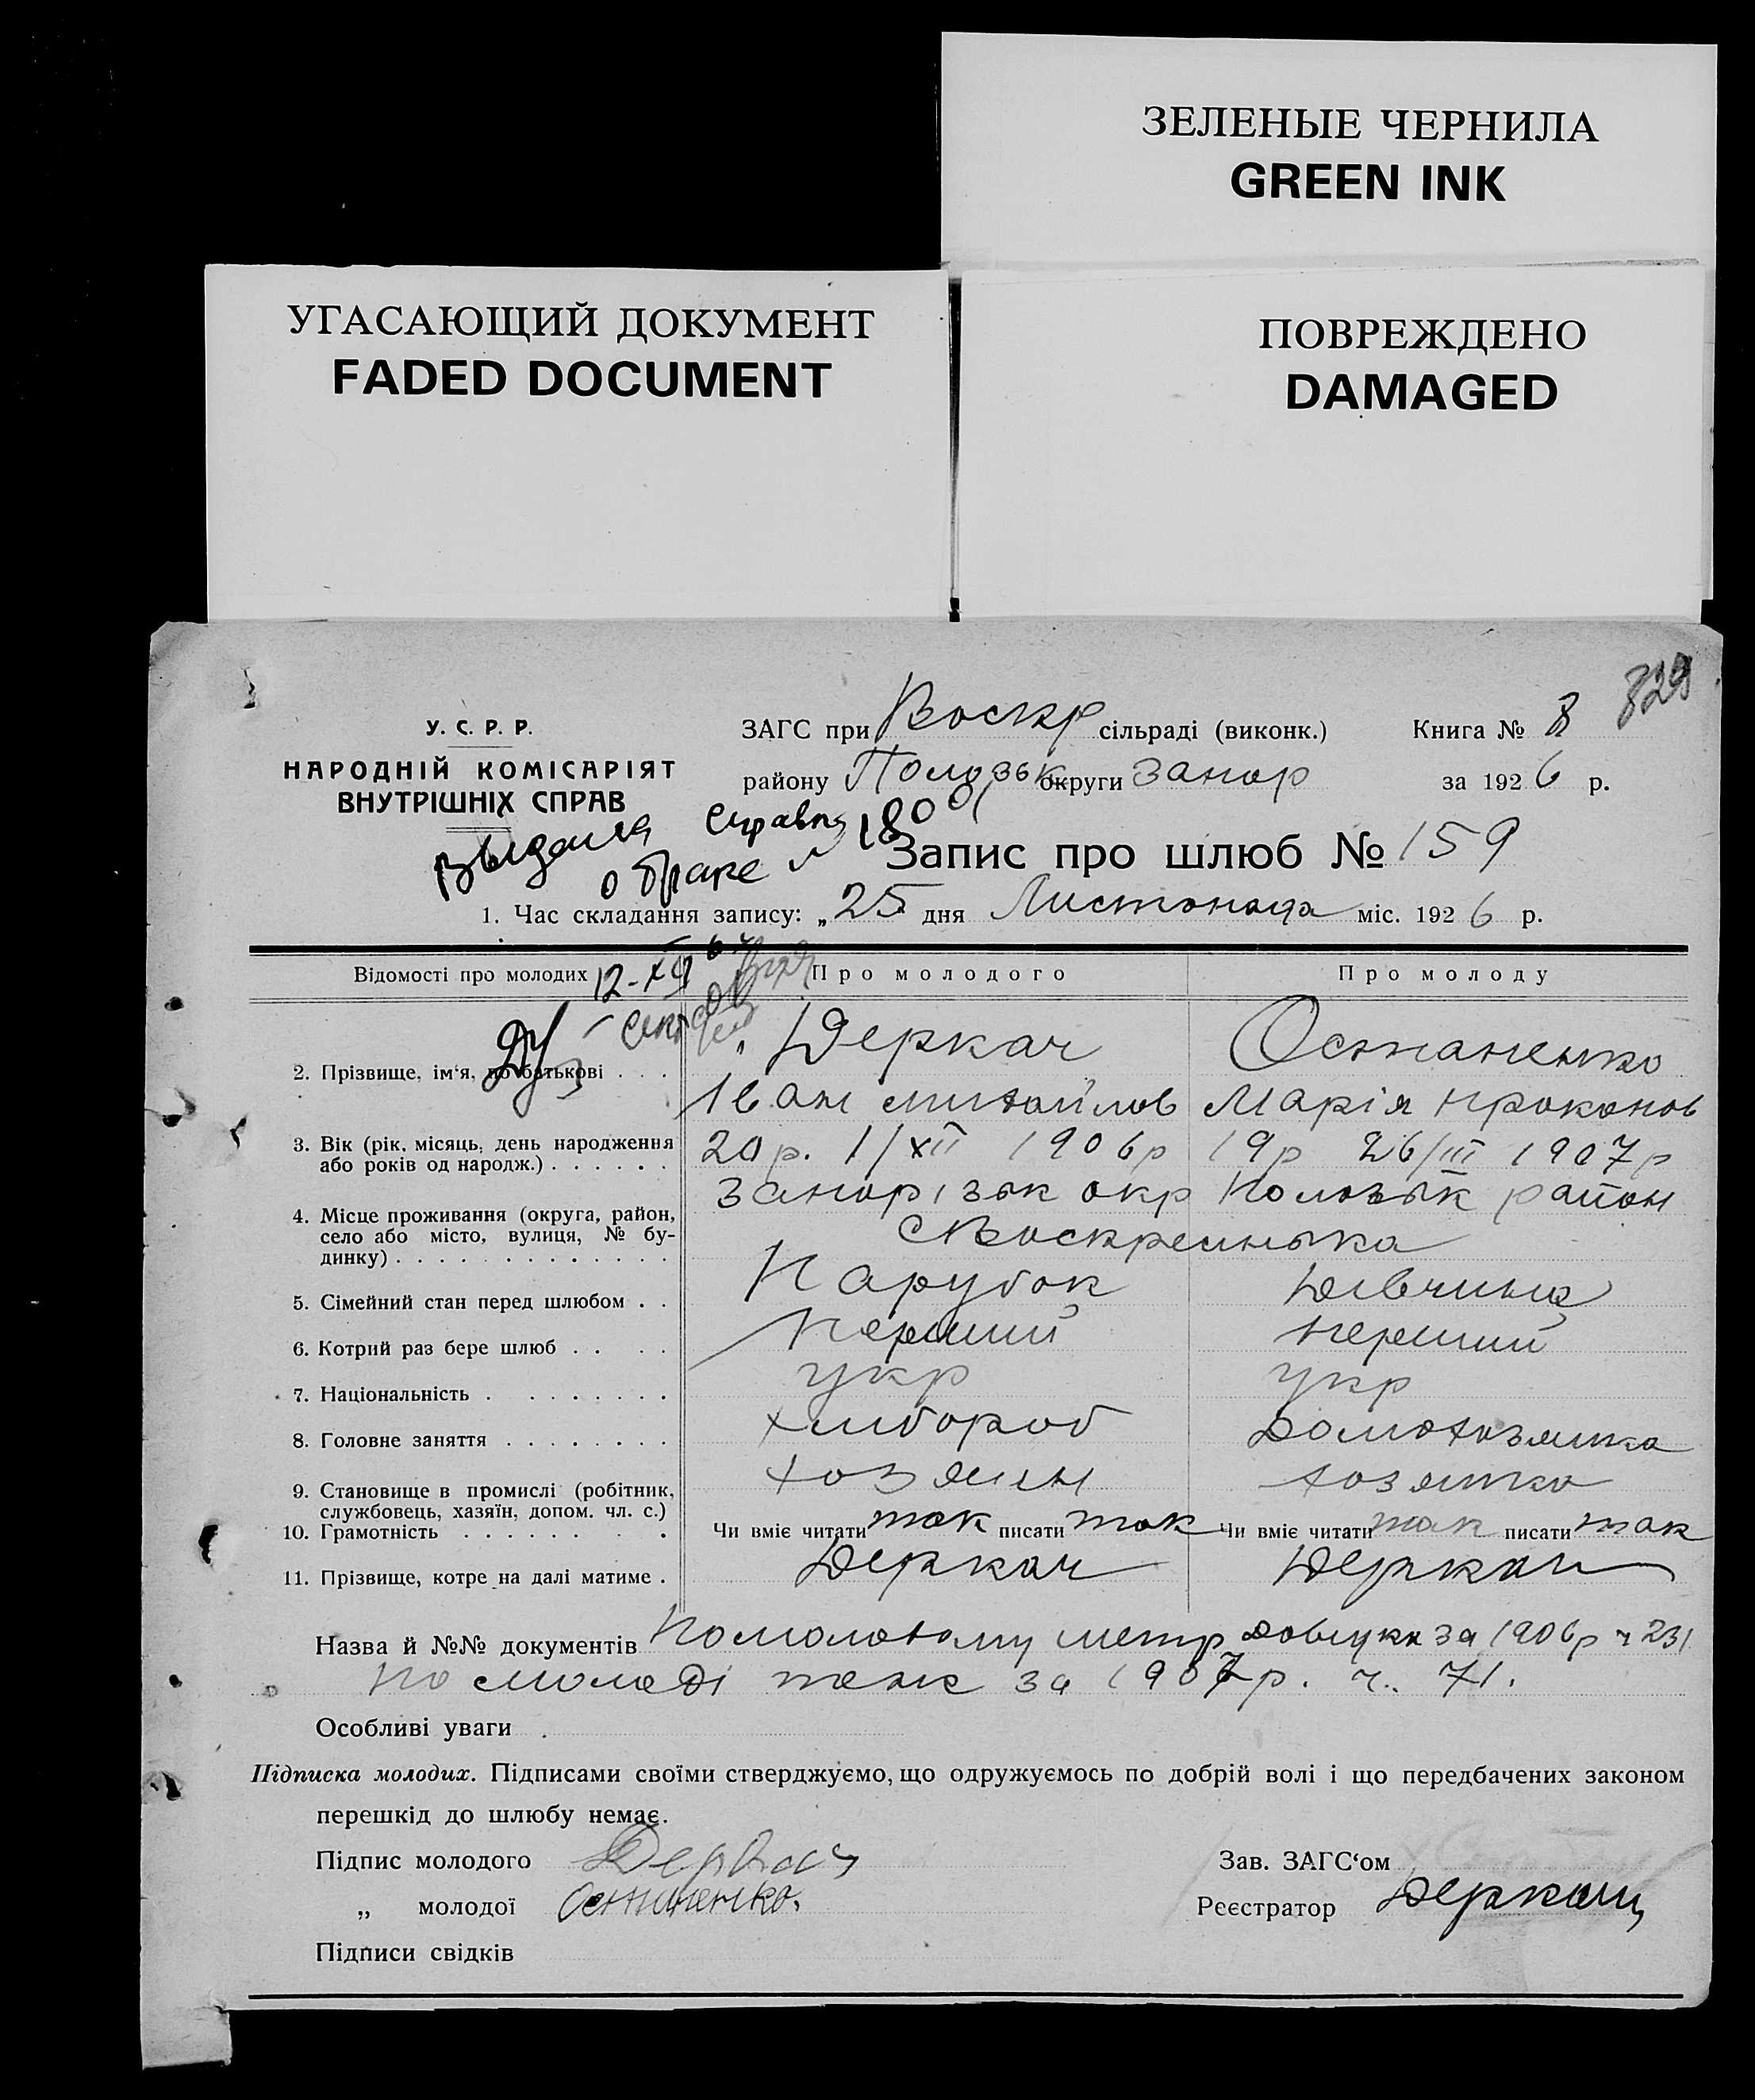 ЗЕЛЕНЫЕ ЧЕРНИЛА
GREEN INK
УГАСАЮЩИЙ ДОКУМЕНТ
FADED DOCUMENT
ПОВРЕЖДЕНО
DAMAGED
829
У. С. Р. Р.
НАРОДНІЙ КОМІСАРІЯТ
ВНУТРІШНІХ СПРАВ
ЗАГС при Воскр сільраді (виконк.) Книга № 8
району Пологзьк округи Запор за 1926 р.
Выдана справка
о браке №
Запис про шлюб № 159
1. Час складання запису: „25 дня Листопада міс. 1926 р.
Відомості про молодих Про молодого Про молоду
12-XII
2. Прізвище, ім‘я, по батькові . . . Деркач Остапенко
Іван михайлов Марія Прокопов
3. Вік (рік, місяць, день народження або років од народж.) . . . . . . 20 р. 1/XII 1906 р 19 р 26/III 1907 р
4. Місце проживання (округа, район, село або місто, вулиця, № будинку) . . . . . . . . . . . . . Запорізьк окр Пологзьк район
с Воскресенька
5. Сімейний стан перед шлюбом . . Парубок Дівчина
6. Котрий раз бере шлюб . . . . Перший перший
7. Національність . . . . . . . . укр укр
8. Головне заняття . . . . . . . . хлибороб Домохозяйка
9. Становище в промислі (робітник, службовець, хазяїн, допом. чл. с.) хозяин хозяйка
10. Грамотність . . . . . . . . Чи вміє читати так писати так Чи вміє читати так писати так
11. Прізвище, котре на далі матиме . Деркач Деркач
Назва й №№ документів По молодому метр за 1906 р ч 231
по молоді теж за 1907 р. ч. 71.
Особливі уваги .
Підписка молодих. Підписами своїми стверджуємо, що одружуємось по добрій волі і що передбачених законом
перешкід до шлюбу немає.
Підпис молодого Деркач Зав. ЗАГС‘ом
„ молодої Остапенко. Реєстратор Деркач
Підписи свідків